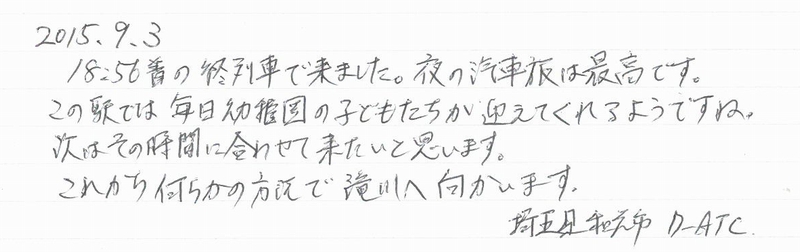 2015.9.3
18:56着の終列車で来ました。夜の汽車旅は最高です。
この駅では毎日幼稚園の子どもたちが迎えてくれるようですね。
次はその時間に合わせて来たいと思います。
これから何らかの方法で滝川へ向かいます。
埼玉県和光市 D-ATC.